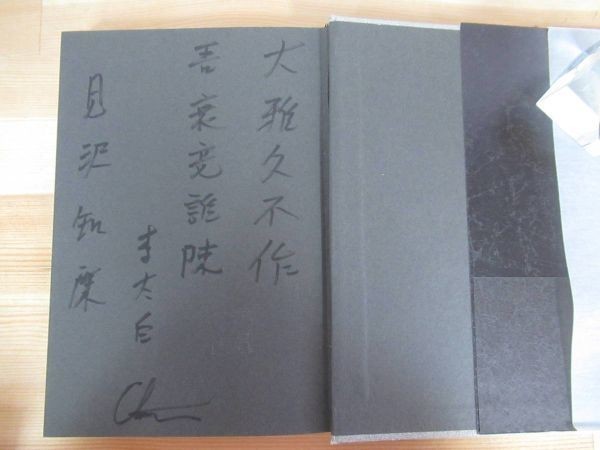 大雅久不作
吾衰竟誰陳
李太白
見沢知廉